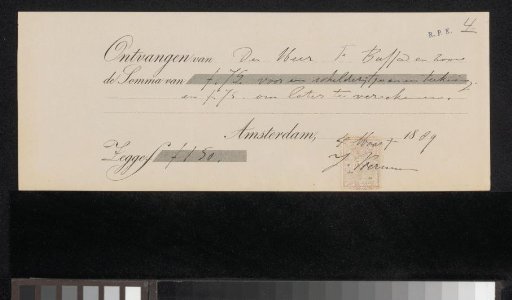 R.P.K. 4
Ontvangen van Den Heer F Buffa en zoon
de Somma van f. 75 voor een schilderij en een teekening
en f. 75 om later te verrekenen.
Amsterdam, 4 Maart 1889
Zegge f 150.